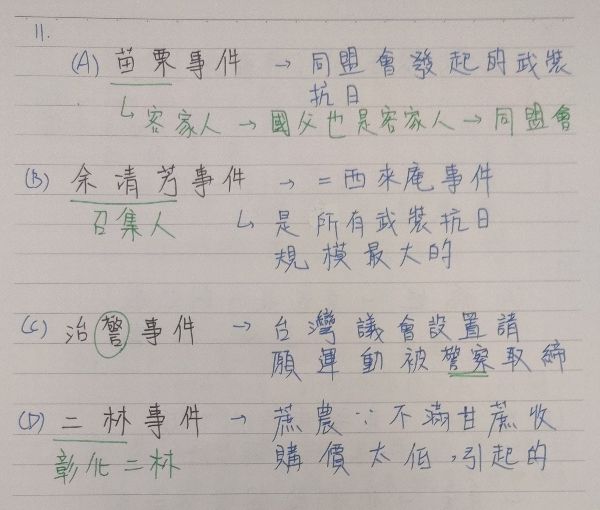 11.
(A) 苗栗事件 → 同盟會發起的武裝
抗日
↳ 客家人 → 國父也是客家人 → 同盟會
(B) 余清芳事件 → = 西來庵事件
召集人 ↳ 是所有武裝抗日
規模最大的
(C) 治警事件 → 台灣議會設置請
願運動被警察取締
(D) 二林事件 → 蔗農∵不滿甘蔗收
彰化二林 購價太低,引起的